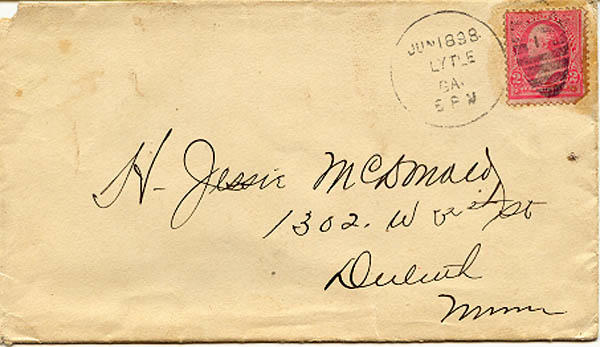 JUN 1898
LYTLE
GA.
5 PM
H. Jessie McDonald
1302. W St
Duluth
Minn